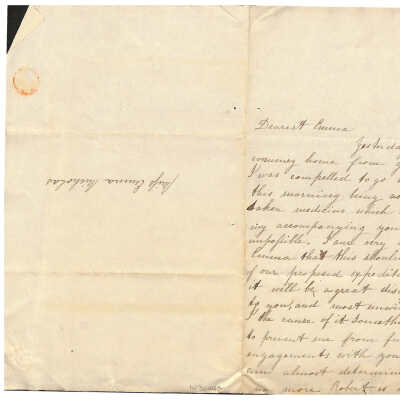 Miss Emma Nicholas
Dearest Emma
Yesterda
home from
I was compelled to go
this morning being
taken medicine which
my accompanying you
impossible. I am very
Emma that this should
of our proposed expedit
it will be a great dis
to you, and most unwi
I the cause of it Someth
to prevent me from ful
engagements with you
am almost determin
no more Robert is